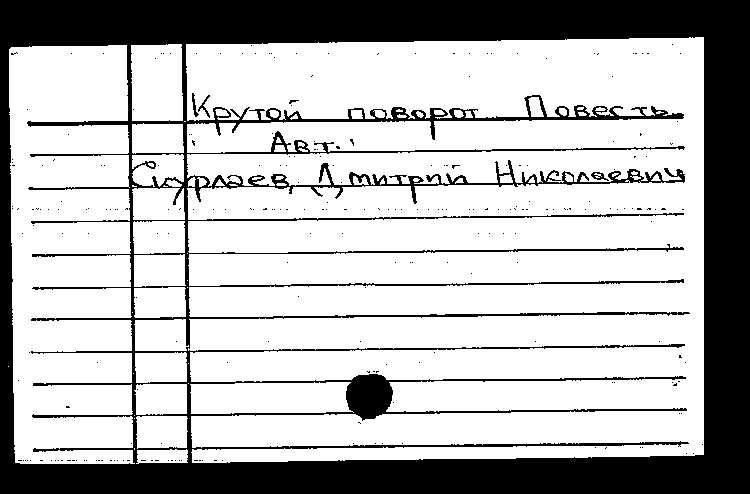 Крутой поворот Повесть.
Авт.:
Скурлаев, Дмитрий Николаевич